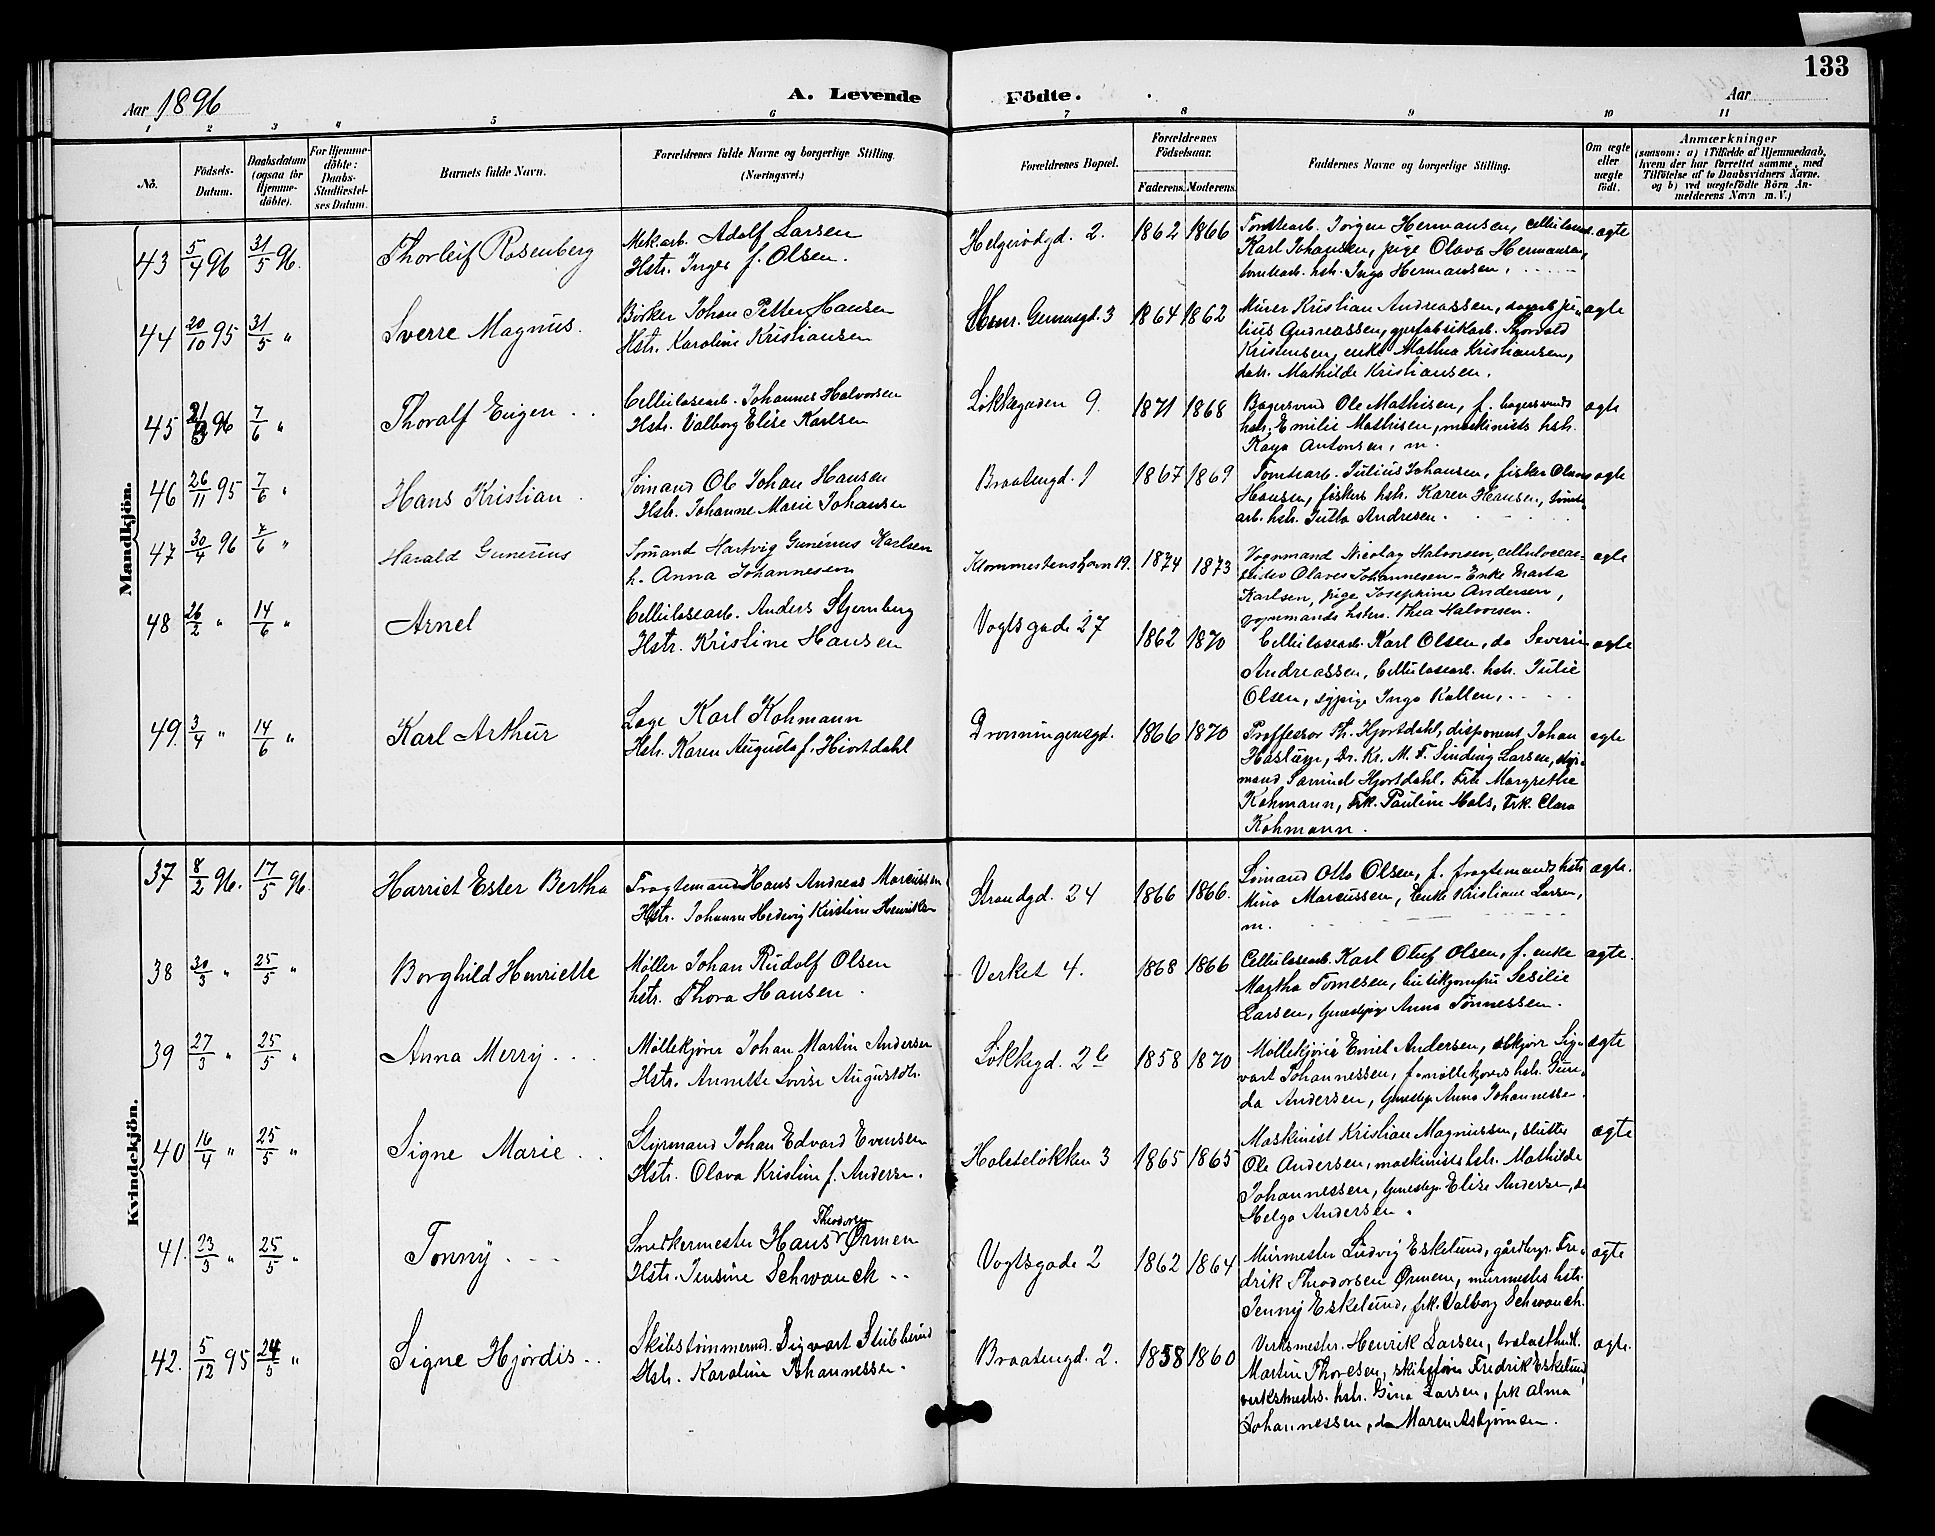 133
Aar 1896
A. Levende
Födte.
Aar
1 2 3 4 5 6 7 8 9 10 11
No.
Födsels-Datum.
Daabsdatum (ogsaa for Hjemmedöbte).
For Hjemmedöbte: Daabs-Stadfæstelses Datum.
Barnets fulde Navn.
Forældrenes fulde Navne og borgerlige Stilling. (Næringsvei.)
Forældrenes Bopæl.
Forældrenes Födselsaar.
Faderens. Moderens.
Faddernes Navne og borgerlige Stilling.
Om ægte eller uægte födt.
Anmærkninger
(saasom: a) i Tilfælde af Hjemmedaab, hvem der har forrettet samme, med Tilföielse af to Daabsvidners Navne. og b) ved uægtefödte Börn Anmelderens Navn m. V.)
Mandkjön.
43 5/4 96 31/5 96. Thorleif Rosenberg
Mek.arb. Adolf Larsen
Hstr. Inger f. Olsen.
Helgerödgd. 2. 1862 1866
Tomtearb. Jörgen Hermansen, cellulosea.
Karl Johansen, pige Olava Hermansen,
tomtearb. hstr. Inga Hermansen.
ægte
44 20/10 95 31/5 " Sverre Magnus.
Johan Petter Hansen
Hstr. Karoline Kristiansen
Henr. Gernersgd. 3 1864 1862
Murer Kristian Andreassen, Julius Andreassen, Thorvald
Kristensen, enke Mathea Kristiansen,
datr. Mathilde Kristiansen.
ægte
45 96 7/6 " Thoralf Eugen
Cellulosearb. Johannes Halvorsen
Hstr. Valborg Elise Karlsen
Løkkegaden 9. 1871 1868
Bagersvend Ole Mathisen, f. bagersvends
hstr. Emilie Mathisen, maskinists hstr.
Kaja Antonsen, m.
ægte
46 26/11 95 7/6 " Hans Kristian.
Sömand Ole Johan Hansen
Hstr. Johanne Marie Johansen
Braatengd. 1 1867 1869
Tomtearb. Julius Johansen, fisker Olaves
Hansen, fiskers hstr. Karen Hansen, tomtearb. hstr. Jutta Andresen.
ægte
47 30/4 96 7/6 " Harald Gunerius
Sömand Hartvig Gunerius Karlsen
h. Anna Johannessen
19. 1874 1873
Vognmand Nicolay Halvorsen,
Olaves Johannesen - Enke Marta
Karlsen, pige Josephine Andersen,
vognmands hstru. Thea Halvorsen.
ægte
48 26/2 " 14/6 " Arnel
Cellulosearb. Anders Stjernberg
Hstr. Kristine Hansen
Vogts gade 27 1862 1870
Cellulosearb. Karl Olsen, do Severin
Andreassen, Cellulosearb. hstr. Julie
Olsen, sypige Inga Kallen,
ægte
49. 3/4 " 14/6 " Karl Arthur
Læge Karl Kohmann
Hstr. Karen Augusta f. Hiortdahl
Dronningensgd. 1866 1870
Proffessor Th. Hjortdahl, disponent Johan
Hastum, Dr. Kr. M. F. Sinding Larsen, styrmand Samuel Hjortdahl. Frk Margrethe
Kohmann, Frk. Pauline Hals, Frk. Clara
Kohmann.
ægte
Kvindekjön.
37 8/2 96. 17/5 96. Harriet Ester Bertha
Fragtemand Hans Andreas Marcussen
Hstr. Johanne Hedevig Kristine Henriksen
Strandgd. 24 1866 1866.
Sömand Otto Olsen, f. fragtemands hstr
Mina Marcussen, Enke Kristiane Larsen,
m.
ægte.
38 30/3 " 25/5 " Borghild Henriette
Møller Johan Rudolf Olsen
hstr. Thora Hansen.
Verket 4. 1868 1866
Cellulosearb. Karl Oluf Olsen, f. enke
Martha Tomesen, butikjomfru Sesilie
Larsen, Anna Tønnessen.
ægte.
39 27/3 " 25/5 " Anna Merry
Møllekjører Johan Martin Andersen
Hstr. Annette Lovise Augustdtr.
Løkkegd. 2b 1858 1870
Møllekjører Emil Andersen, Sigvart Johannessen, f. møllekjørers hstr. Gurida Andersen, Anna Johannessen.
ægte
40 16/4 " 25/5 " Signe Marie
Styrmand Johan Edvard Evensen
Hstr. Olava Kristine f. Andersen.
Holsteløkken 3 1865 1865
Maskinist Kristian Magnussen,
Ole Andersen, maskinists hstr. Mathilde
Johannessen, Elise Andersen, do
Helga Andersen.
ægte
41. 23/3 " 25/5 " Tonny
Snedkermester Hans Theodorsen Ørmen
Hstr. Jensine Schwanck
Vogtsgade 2 1862 1864
Murmester Ludvig Eskelund, gårdbrgr. Fredrik Theodorsen Ørmen, murmesters hstr.
Jenny Eskelund, frk. Valborg Schwanck.
ægte
42. 5/12 95 24/5 " Signe Hjördis
Skibstømmermd. Sigvart Stubberud
Hstr. Karoline Johannessen.
Braatengd. 2. 1858 1860
Verksmester. Henrik Larsen, trælasthndl.
Martin Thoresen, skibsfører Fredrik Eskelund,
verksmesters. hstr. Gina Larsen, frk Alma
Johannessen, do Maren Asbjørnsen.
ægte.